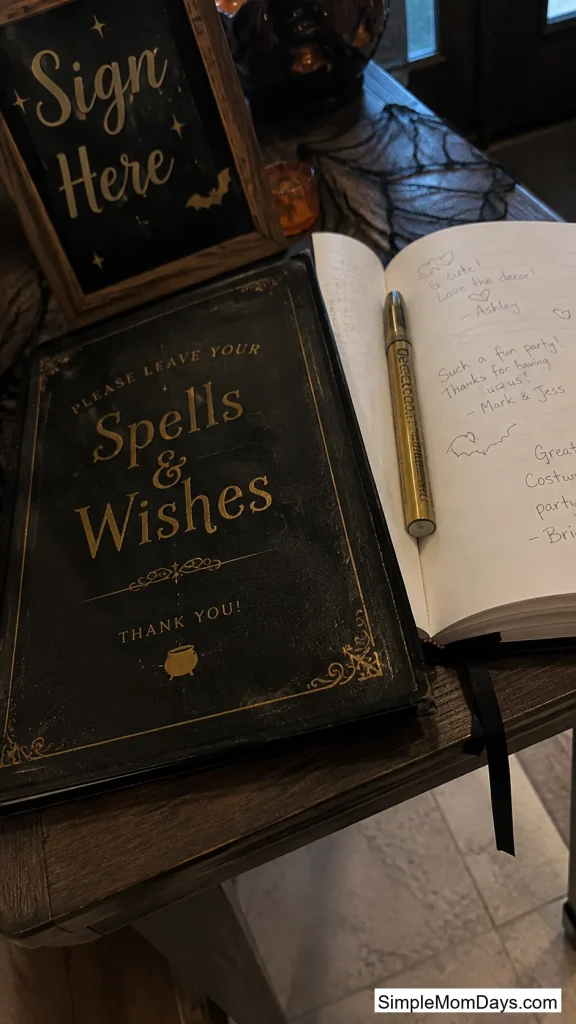 Sign
Here
PLEASE LEAVE YOUR
Spells
&
Wishes
THANK YOU!
cute!
Love the decor!
- Ashley
Such a fun party!
Thanks for having
- Mark & Jess
Great
party
SimpleMomDays.com